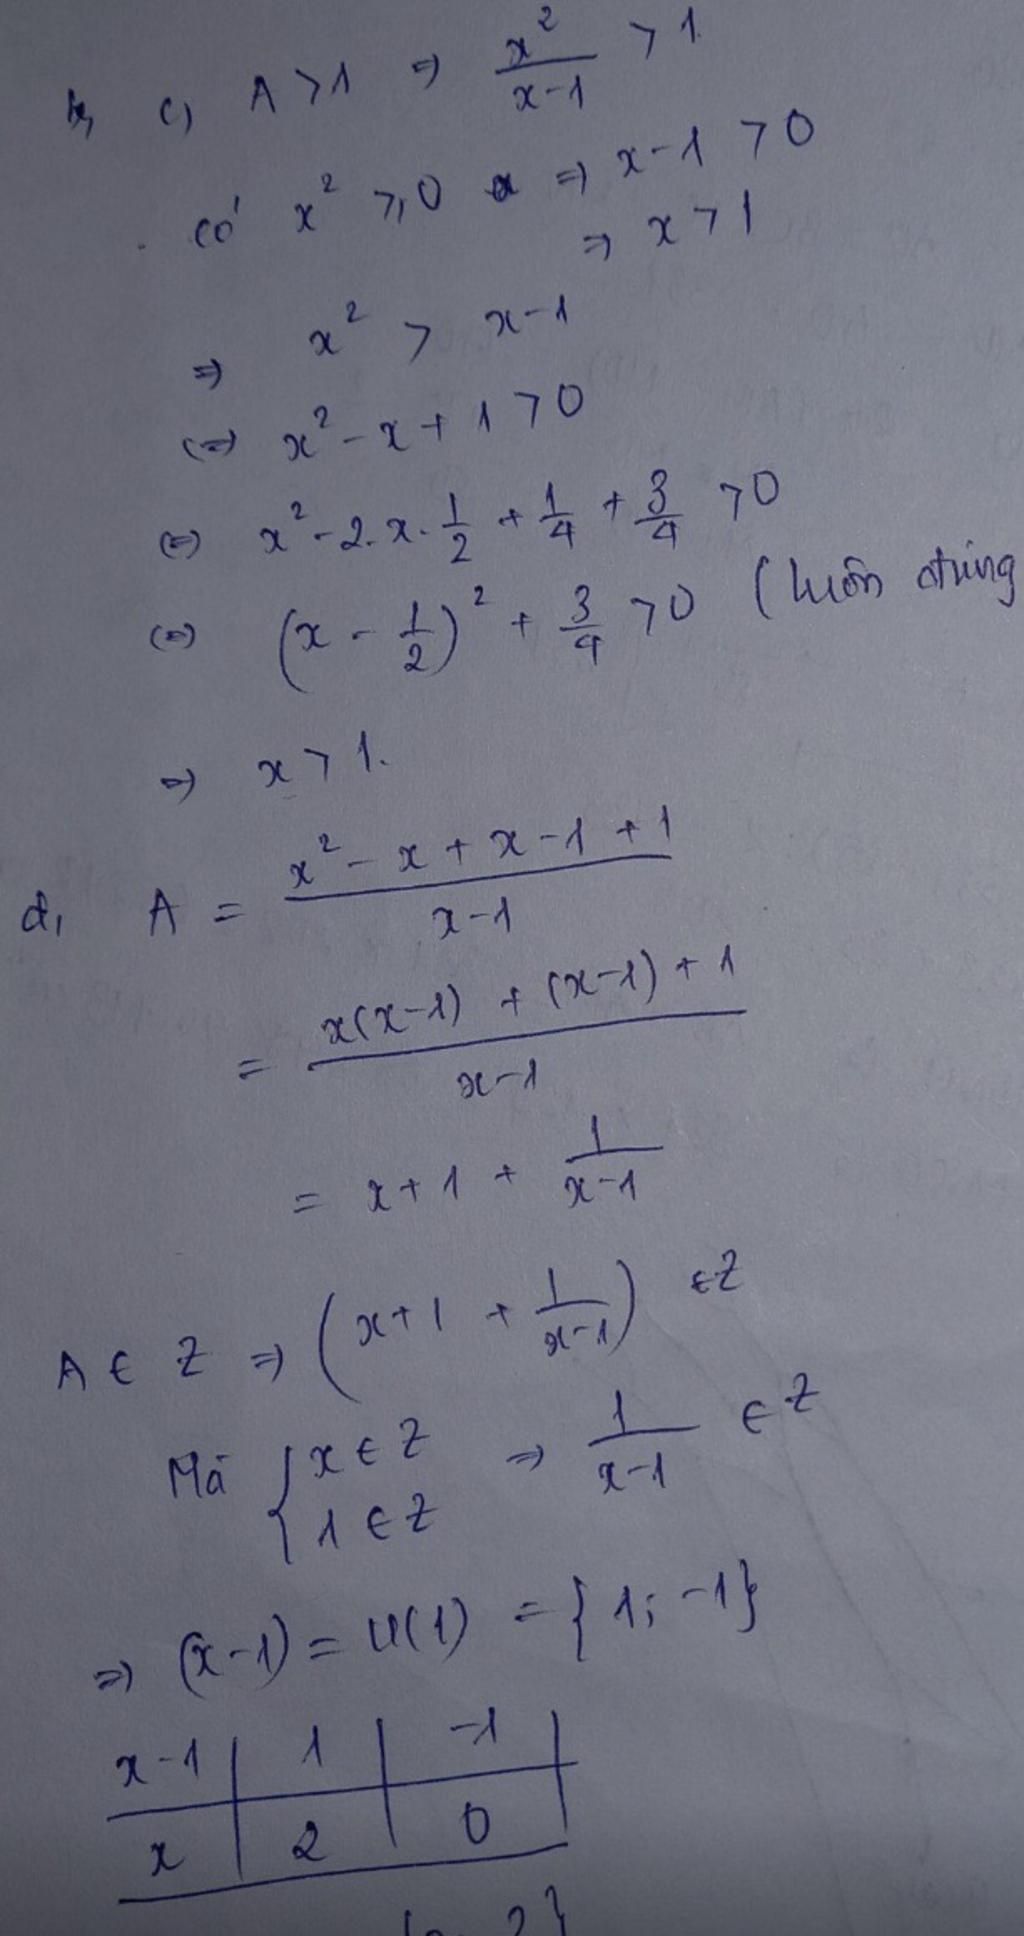 c, A > 1 => x²/(x-1) > 1
Có x² ≥ 0 => x-1 > 0
=> x > 1
=> x² > x-1
(=) x² - x + 1 > 0
(=) x² - 2.x.1/2 + 1/4 + 3/4 > 0
(=) (x - 1/2)² + 3/4 > 0 (luôn đúng
=> x > 1.
d, A = (x² - x + x - 1 + 1)/(x-1)
= (x(x-1) + (x-1) + 1)/(x-1)
= x+1 + 1/(x-1)
A ∈ Z => (x+1 + 1/(x-1)) ∈ Z
Mà { x ∈ Z => 1/(x-1) ∈ Z
1 ∈ Z
=> (x-1) = Ư(1) = {1; -1}
x-1 | 1 | -1
x | 2 | 0
2}